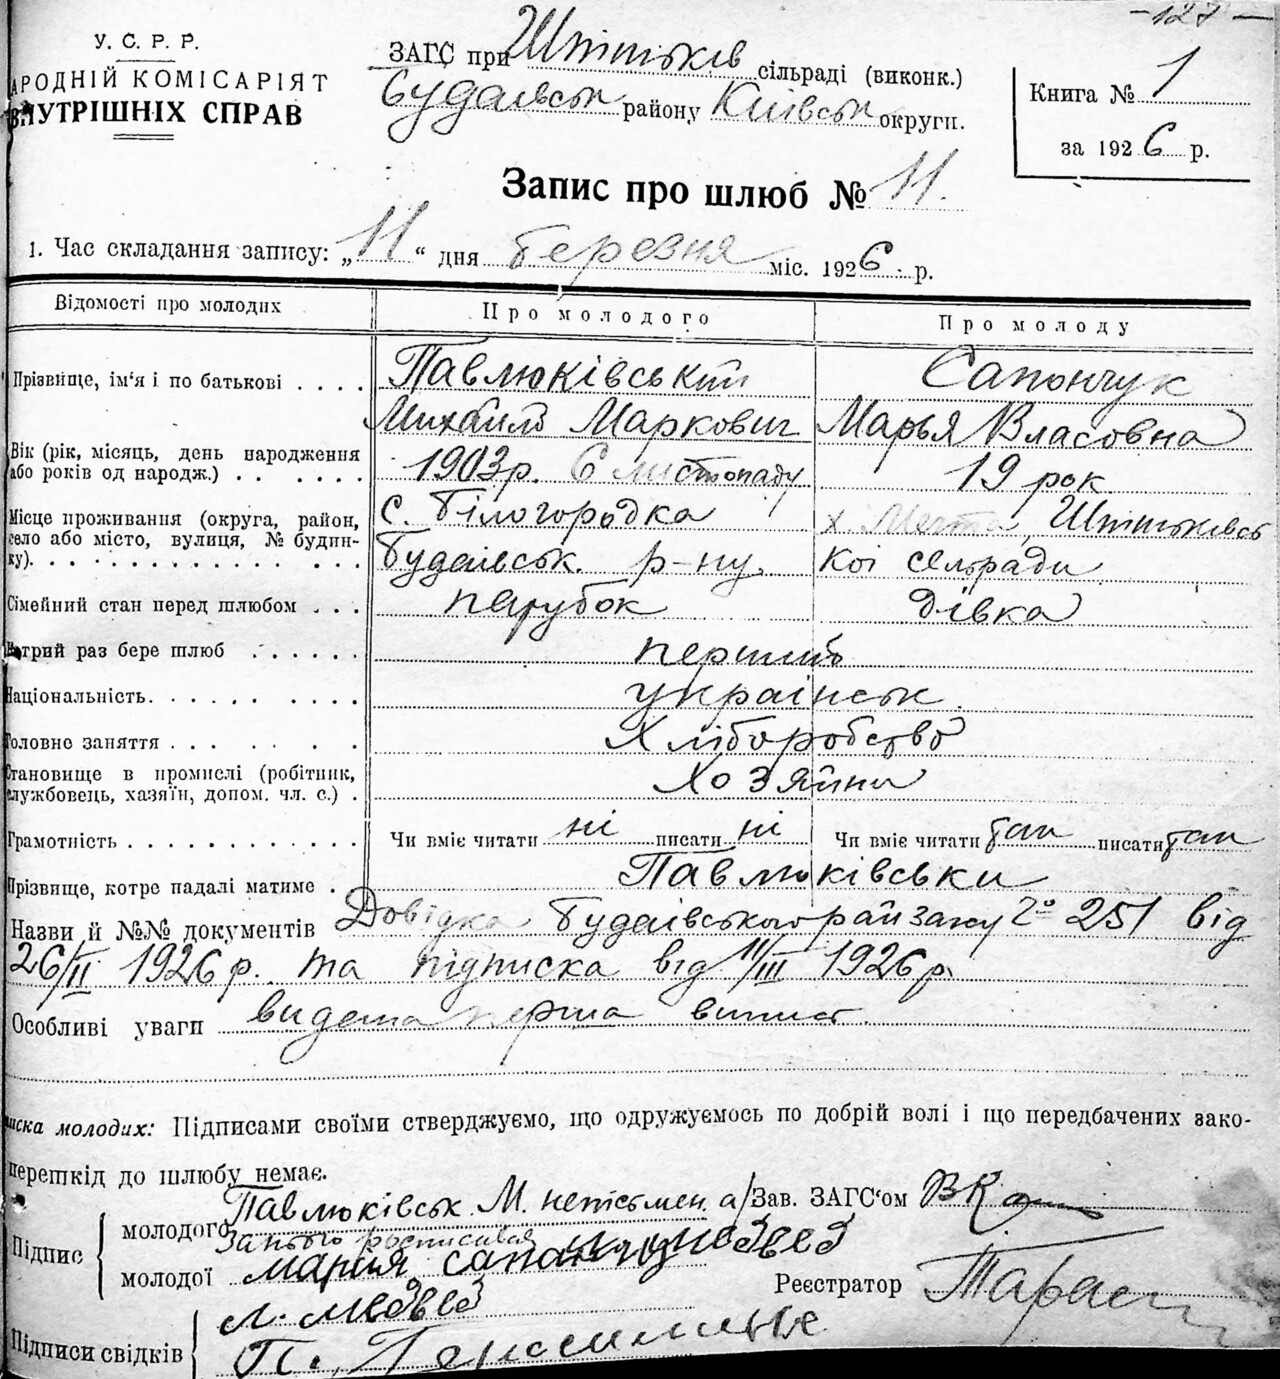 -127-
У. С. Р. Р.
АРОДНІЙ КОМІСАРІЯТ
ВНУТРІШНІХ СПРАВ
ЗАГС при Шпітьків сільраді (виконк.)
Будаївськ району Київськ округи.
Книга № 1
за 1926 р.
Запис про шлюб № 11.
1. Час складання запису: „11“ дня березня міс. 1926 р.
Відомості про молодих
Про молодого
Про молоду
Прізвище, ім‘я і по батькові . . . .
Павлюківський
Сапончук
Михайло Маркович
Марья Власовна
Вік (рік, місяць, день народження
або років од народж.) . . . . . .
1903р. 6 листопаду
19 рок
Місце проживання (округа, район,
село або місто, вулиця, № будин-
ку). . . . . . . . . . . . . . . .
с. Білогородка
х Мечта, Шпітьківсь
Будаівськ. р-ну.
коі сельради
Сімейний стан перед шлюбом . . .
парубок
дівка
отрий раз бере шлюб . . . . . .
першиб
Національність. . . . . . . . . .
українськ.
Головне заняття . . . . . . . .
Хліборобство
Становище в промислі (робітник,
службовець, хазяїн, допом. чл. с.) .
Хозяйни
Грамотність . . . . . . . . . . . .
Чи вміє читати ні писати ні
Чи вміє читати так писати так
Прізвище, котре надалі матиме .
Павлюківськи
Назви й №№ документів Довідка Будаівського райзагсу № 251 від
26/II 1926р. та підписка від 11/III 1926р.
Особливі уваги видана перша випись.
иска молодих: Підписами своїми стверджуємо, що одружуємось по добрій волі і що передбачених зако-
перешкід до шлюбу немає.
Підпис
молодого Павлюківськ М. непісьмен. а/
За нього росписався
молодої Мария
Зав. ЗАГС‘ом
Реєстратор Тарас
Підписи свідків
П.